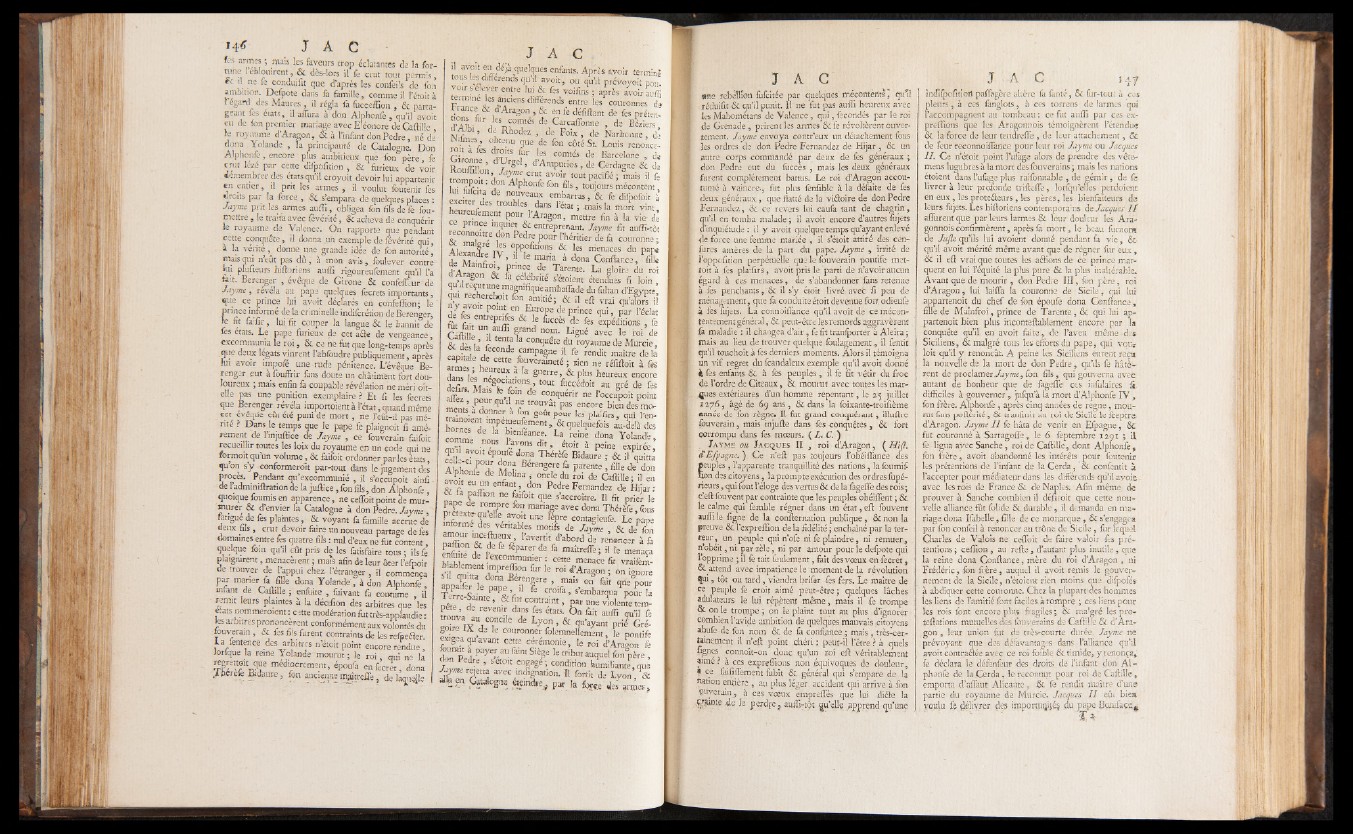 146 J A C
ses armes ; mais les faveurs trop éclatantes de la for-
tune l'éblouirent, & dès-lors il se crut tout permis,
& il ne se conduisit que d'après les conseils de son
ambition. Despote dans sa famille, comme il l'étoit à
l'égard des Maures, il régla sa succession, & parta-
geant ses états, il assura à don Alphonse, qu'il avoit
eu de son premier mariage avec E'éonore de Castille,
le royaume d'Aragon, & à l'infant don Pedre, né de
dona Yolande, la principauté de Catalogne. Don
Alphonse, encore plus ambitieux que son père, se
crut lézé par cette disposition, & furieux de voir
démembrer des états qu'il croyoit devoir lui appartenir
en entier, il prit les armes, il voulut soutenir ses
droits par la force, & s'empara de quelques places :
Jayme prit les armes aussi, obligea son fils de se sou-
mettre, le traita avec sévérité, & acheva de conquérir
le royaume de Valence. On rapporte que pendant
cette conquête, il donna un exemple de sévérité qui,
à la vérité, donne une grande idée de son autorité,
mais qui n'eût pas dû, à mon avis, soulever contre
lui plusieurs historiens aussi rigoureusement qu'il l'a
fait. Berenger, évêque de Girone & confesseur de
Jayme, révéla au pape quelques secrets importants,
que ce prince lui avoit déclarés en confession; le
prince informé de la criminelle indiscrétion de Berenger,
le fit saisir, lui fit couper la langue & le bannit de
ses états. Le pape furieux de cet acte de vengeance,
excommunia le roi, & ce ne fut que long-temps après
que deux légats vinrent l'absoudre publiquement, après
lui avoir imposé une rude pénitence. L'évêque Be-
renger eut à souffrir sans doute un châtiment fort dou-
loureux ; mais enfin sa coupable révélation ne méritoit-
elle pas une punition exemplaire ? Et si les secrets
que Berenger révéla importoient à l'état, quand même
cet évêque eût été puni de mort, ne l'eût-il pas mé-
rité ? Dans le temps que le pape se plaignoit si amè-
rement de l'injustice de Jayme, ce souverain faisoit
recueillir toutes les loix du royaume en un code qui ne
formoit qu'un volume, & faisoit ordonner par les états,
qu'on s'y conformeroit par-tout dans le jugement des
procès. Pendant qu'excommunié, il s'occupoit ainsi
de l'administration de la justice, son fils, don Alphonse,
quoique soumis en apparence, ne cessoit point de mur-
murer & d'envier sa Catalogne à don Pedre. Jayme,
fatigué de ses plaintes, & voyant sa famille accrue de
deux fils, crut devoir faire un nouveau partage de ses
domaines entre ses quatre fils : nul d'eux ne fut content,
quelque soin qu'il eût pris de les satisfaire tous ; ils se
plaignirent, menacèrent ; mais afin de leur ôter l'espoir
de trouver de l'appui chez l'étranger, il commença
par marier sa fille dona Yolande, à don Alphonse,
infant de Castille ; ensuite, suivant sa coutume, il
remit leurs plaintes à la décision des arbitres que les
états nommeroient : cette modération fut très-applaudie :
les arbitres prononcèrent conformément aux volontés du
souverain, & ses fils furent contraints de les respecter.
La sentence des arbitres n'étoit point encore rendue,
lorsque la reine Yolande mourut ; le roi, qui ne la
regrettoit que médiocrement, épousa en secret, dona
Thérèse Bidaure, son ancienne maîtresse, de laquelle
J A C
il avoit eu déjà quelques enfants. Après avoir terminé
tous les différends qu'il avoit, ou qu'il prévoyoit pou-
voir s'élever entre lui & ses voisins ; après avoir aussi
terminé les anciens différends entre les couronnes de
France & d'Aragon, & en se désistant de ses préten-
tions sur les comtés de Carcassonne, de Béziers,
d'Albi, de Rhodez, de Foix, de Narbonne, de
Nismes, obtenu que de son côté St. Louis renonce-
roit à ses droits sur les comtés de Barcelone, de
Gironne, d'Urgel, d'Ampuries, de Cerdagne & de
Roussillon, Jayme crut avoir tout pacifié ; mais il se
trompoit : don Alphonse son fils, toujours mécontent,
lui suscita de nouveaux embarras, & se disposoit à
exciter des troubles dans l'état ; mais la mort vint,
heureusement pour l'Aragon, mettre fin à la vie de
ce prince inquiet & entreprenant. Jayme fit aussi-tôt
reconnoître don Pedre pour l'héritier de sa couronne ;
& malgré les oppositions & les menaces du pape
Alexandre IV, il le maria à dona Constance, fille
de Mainfroi, prince de Tarente. La gloire du roi
d'Aragon & sa célébrité s'étoient étendues si loin,
qu'il reçut une magnifique ambassade du sultan d'Egypte,
qui recherchoit son amitié ; & il est vrai qu'alors il
n'y avoit point en Europe de prince qui, par l'éclat
de ses entreprises & le succès de ses expéditions, se
fût fait un aussi grand nom. Ligué avec le roi de
Castille, il tenta la conquête du royaume de Murcie,
& dès la seconde campagne il se rendit maître de la
capitale de cette souveraineté ; rien ne résistoit à ses
armes ; heureux à la guerre, & plus heureux encore
dans les négociations, tout succédoit au gré de ses
desirs. Mais le soin de conquérir ne l'occupoit point
assez, pour qu'il ne trouvât pas encore bien des mo-
ments à donner à son goût pour les plaisirs, qui l'en-
traînoient impétueusement, & quelquefois au-delà des
bornes de la bienséance. La reine dona Yolande,
comme nous l'avons dit, étoit à peine expirée,
qu'il avoit épousé dona Thérèse Bidaure ; & il quitta
celle-ci pour dona Bérengere sa parente, fille de don
Alphonse de Molina, oncle du roi de Castille ; il en
avoit eu un enfant, don Pedre Fernandez de Hijar ;
& sa passion ne faisoit que s'accroître. Il fit prier le
pape de rompre son mariage avec dona Thérèse, sous
prétexte qu'elle avoit une lèpre contagieuse. Le pape
informé des véritables motifs de Jayme, & de son
amour incestueux, l'avertit d'abord de renoncer à sa
passion & de se séparer de sa maîtresse ; il le menaça
ensuite de l'excommunier : cette menace fit vraisem-
blablement impression sur le roi d'Aragon ; on ignore
s'il quitta dona Bérengere, mais on sait que pour
appaiser le pape, il se croisa, s'embarqua pour la
Terre-Sainte, & fut contraint, par une violente tem-
pête, de revenir dans ses états. On sait aussi qu'il se
trouva au concile de Lyon, & qu'ayant prié Gré-
goire IX de le couronner solemnellement, le pontife
exigea qu'avant cette cérémonie, le roi d'Aragon se
soumît à payer au saint Siège le tribut auquel son père,
don Pedre, s'étoit engagé ; condition humiliante, que
Jayme rejetta avec indignation. Il sortit de Lyon, &
alla en Catalogne éteindre, par la force des armes,
J A C
une rebellion suscitée par quelques mécontents, qu'il
réduisit & qu'il punit. Il ne fut pas aussi heureux avec
les Mahométans de Valence, qui, secondés par le roi
de Grenade, prirent les armes & se révoltèrent ouver-
tement. Jayme envoya contr'eux un détachement sous
les ordres de don Pedre Fernandez de Hijar, & un
autre corps commandé par deux de ses généraux ;
don Pedre eut du succès, mais les deux généraux
furent complètement battus. Le roi d'Aragon accou-
tumé à vaincre, fut plus sensible à la défaite de ses
deux généraux, que flatté de la victoire de don Pedre
Fernandez, & ce revers lui causa tant de chagrin,
qu'il en tomba malade ; il avoit encore d'autres sujets
d'inquiétude : il y avoit quelque temps qu'ayant enlevé
de force une femme mariée, il s'étoit attiré des cen-
sures amères de la part du pape. Jayme, irrité de
l'opposition perpétuelle que le souverain pontife met-
toit à ses plaisirs, avoit pris le parti de n'avoir aucun
égard à ces menaces, de s'abandonner sans retenue
à ses penchants, & il s'y étoit livré avec si peu de
ménagement, que sa conduite étoit devenue fort odieuse
à ses sujets. La connoissance qu'il avoit de ce mécon-
tentement général, & peut-être les remords aggravèrent
sa maladie : il changea d'air, se fit transporter à Alcira ;
mais au lieu de trouver quelque soulagement, il sentit
qu'il touchoit à ses derniers moments. Alors il témoigna
un vif regret du scandaleux exemple qu'il avoit donné
à ses enfants & à ses peuples, il se fit vêtir du froc
de l'ordre de Citeaux, & mourut avec toutes les mar-
ques extérieures d'un homme repentant, le 25 juillet
1276, âgé de 69 ans, & dans la soixante-troisième
année de son règne. Il fut grand conquérant, illustre
souverain, mais injuste dans ses conquêtes, & fort
corrompu dans ses mœurs. ( L. C. )
JAYME ou JACQUES II, roi d'Aragon, ( Hist.
d'Espagne. ) Ce n'est pas toujours l'obéissance des
peuples, l'apparente tranquillité des nations, la soumis-
sion des citoyens, la prompte exécution des ordres supé-
rieurs, qui font l'éloge des vertus & de la sagesse des rois ;
c'est souvent par contrainte que les peuples obéissent ; &
le calme qui semble régner dans un état, est souvent
aussi le signe de la consternation publique, & non la
preuve & l'expression de la fidélité ; enchaîné par la ter-
reur, un peuple qui n'ose ni se plaindre, ni remuer,
n'obéit, ni par zèle, ni par amour pour le despote qui
l'opprime ; il se tait seulement, fait des vœux en secret,
& attend avec impatience le moment de la révolution
qui, tôt ou tard, viendra briser ses fers. Le maître de
ce peuple se croit aimé peut-être ; quelques lâches
adulateurs le lui répètent même, mais il se trompe
& on le trompe ; on le plaint tout au plus d'ignorer
combien l'avide ambition de quelques mauvais citoyens
abuse de son nom & de sa confiance ; mais, très-cer-
tainement il n'est point chéri : peut-il l'être ? à quels
signes connoît-on donc qu'un roi est véritablement
aimé ? à ces expressions non équivoques de douleur,
à ce saisissement subit & général qui s'empare de la
nation entière, au plus léger accident qui arrive à son
souverain, à ces vœux empressés que lui dicte la
crainte de le perdre, aussi-tôt qu'elle apprend qu'une
J A C 147
indisposition passagère altère sa santé, & sur-tout à ces
pleurs, à ces sanglots, à ces torrens de larmes qui
l'accompagnent au tombeau : ce fut aussi par ces ex-
pressions que les Aragonnois témoignèrent l'étendue
& la force de leur tendresse, de leur attachement, &
de leur reconnoissance pour leur roi Jayme ou Jacques
II. Ce n'étoit point l'usage alors de prendre des vête-
mens lugubres à la mort des souverains ; mais les nations
étoient dans l'usage plus raisonnable, de gémir, de se
livrer à leur profonde tristesse, lorsqu'elles perdoient
en eux, les protecteurs, les pères, les bienfaiteurs de
leurs sujets. Les historiens contemporains de Jacques II
assurent que par leurs larmes & leur douleur les Ara-
gonnois confirmèrent, après sa mort, le beau surnom
de Juste qu'ils lui avoient donné pendant sa vie, &
qu'il avoit mérité même avant que de régner sur eux,
& il est vrai que toutes les actions de ce prince mar-
quent en lui l'équité la plus pure & la plus inaltérable.
Avant que de mourir, don Pedre III, son père, roi
d'Aragon, lui laissa la couronne de Sicile, qui lui
appartenoit du chef de son épouse dona Constance,
fille de Mainfroi, prince de Tarente, & qui lui ap-
partenoit bien plus incontestablement encore par la
conquête qu'il en avoit faite, de l'aveu même des
Siciliens, & malgré tous les efforts du pape, qui vou-
loit qu'il y renonçât. A peine les Siciliens eurent reçu
la nouvelle de la mort de don Pedre, qu'ils se hâtè-
rent de proclamer Jayme, son fils, qui gouverna avec
autant de bonheur que de sagesse ces insulaires si
difficiles à gouverner, jusqu'à la mort d'Alphonse IV,
son frère. Alphonse, après cinq années de règne, mou-
rut sans postérité, & transmit au roi de Sicile le sceptre
d'Aragon. Jayme II se hâta de venir en Espagne, &
fut couronné à Sarragosse, le 6 septembre 1291 ; il
se ligua avec Sanche, roi de Castille, dont Alphonse,
son frère, avoit abandonné les intérêts pour soutenir
les prétentions de l'infant de la Cerda, & consentit à
l'accepter pour médiateur dans les différends qu'il avoit
avec les rois de France & de Naples. Afin même de
prouver à Sanche combien il desiroit que cette nou-
velle alliance fût solide & durable, il demanda en ma-
riage dona Isabelle, fille de ce monarque, & s'engagea
par son conseil à renoncer au trône de Sicile, sur lequel
Charles de Valois ne cessoit de faire valoir ses pré-
tentions ; cession, au reste, d'autant plus inutile, que
la reine dona Constance, mère du roi d'Aragon, ni
Frédéric, son frère, auquel il avoit remis le gouver-
nement de la Sicile, n'étoient rien moins que disposés
à abdiquer cette couronne. Chez la plupart des hommes
les liens de l'amitié sont faciles à rompre ; ces liens pour
les rois sont encore plus fragiles ; & malgré les pro-
testations mutuelles des souverains de Castille & d'Ara-
gon, leur union fut de très-courte durée. Jayme ne
prévoyant que des désavantages dans l'alliance qu'il
avoit contractée avec ce roi foible & timide, y renonça,
se déclara le défenseur des droits de l'infant don Al-
phonse de la Cerda, le reconnut pour roi de Castille,
emporta d'assaut Alicante, & se rendit maître d'une
partie du royaume de Murcie. Jacques II eût bien
voulu se délivrer des importunités du pape Boniface,
T 2